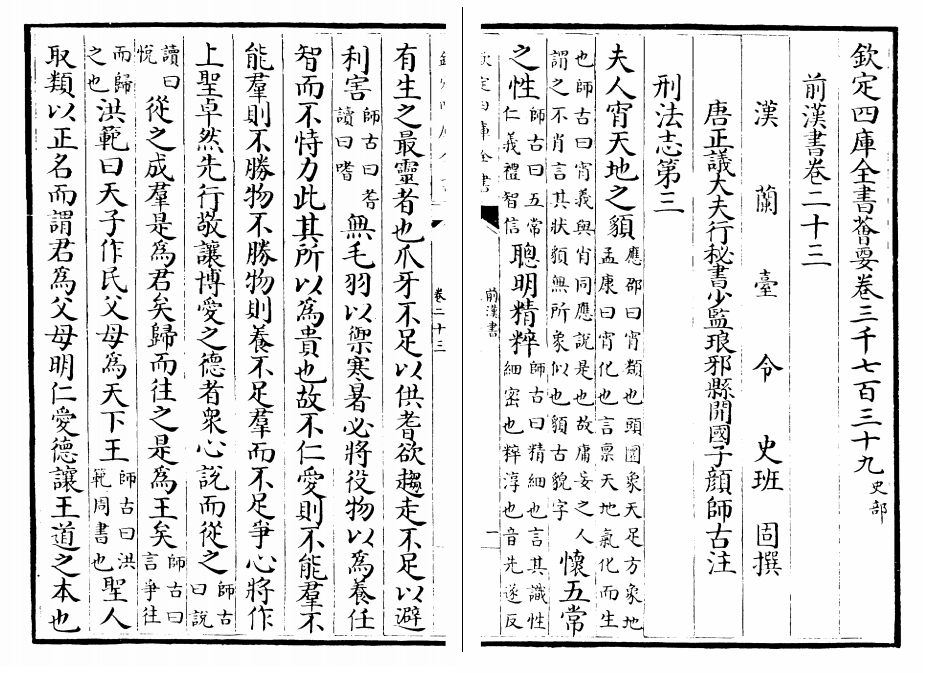 欽定四庫全書薈要卷三千七百三十九史部
前漢書卷二十三
漢蘭臺令史班固撰
唐正議大夫行秘書少監琅邪縣開國子顏師古注
刑法志第三
夫人宵天地之䫉應邵曰宵類也頭圓象天足方象地孟康曰宵化也言禀天地氣化而生
也師古曰宵義與肖同應說是也故庸妄之人謂之不肖言其狀䫉無所象似也䫉古貌字懷五常
之性師古曰五常仁義禮智信聰明精粹師古曰精細也言其識性細密也粹淳也音先遂反
欽定四庫全書
前漢書
一
卷二十三
有生之最靈者也爪牙不足以供耆欲趨走不足以避
利害師古曰耆讀曰嗜無毛羽以禦寒暑必將役物以為養任
智而不恃力此其所以為貴也故不仁愛則不能羣不
能羣則不勝物不勝物則養不足羣而不足爭心將作
上聖卓然先行敬讓博愛之德者衆心說而從之師古曰說
讀曰悅從之成羣是為君矣歸而往之是為王矣師古曰言爭往
而歸之也洪範曰天子作民父母為天下王師古曰洪範周書也聖人
取類以正名而謂君為父母明仁愛德讓王道之本也